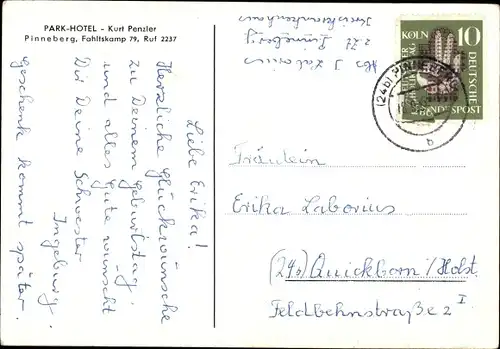 PARK-HOTEL - Kurt Penzler
Pinneberg, Fahltskamp 79, Ruf 2237
Liebe Erika!
Herzliche Glückwünsche
zu Deinem Geburtstag
und alles Gute wünscht
Dir Deine Schwester
Ingeburg.
Geschenk kommt später.
Abs. J. Laborius
Pinneberg
Kreiskrankenhaus
KÖLN 10
DEUTSCHE
BUNDESPOST
(24b) PINNEBERG
b
Fräulein
Erika Laborius
(24b) Quickborn/Holst
Feldbehnstraße 2 I